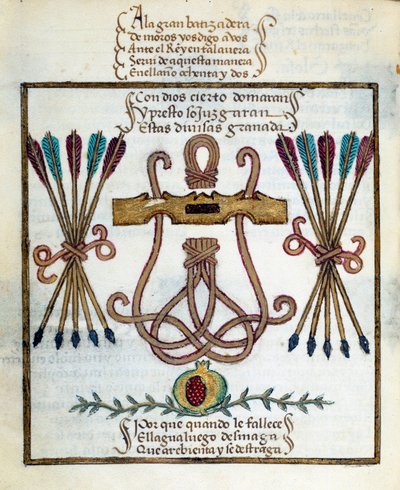 A la gran batizadera
de moros yos digo a vos
Ante el Rey en talauera
Serui de aquesta manera
En el año ochenta y dos
Con dios cierto domaran
y presto sojuzgaran
Estas diuisas granada
Por que quando le fallece
El lagua luego desmaga
Que arebienta y se destraga